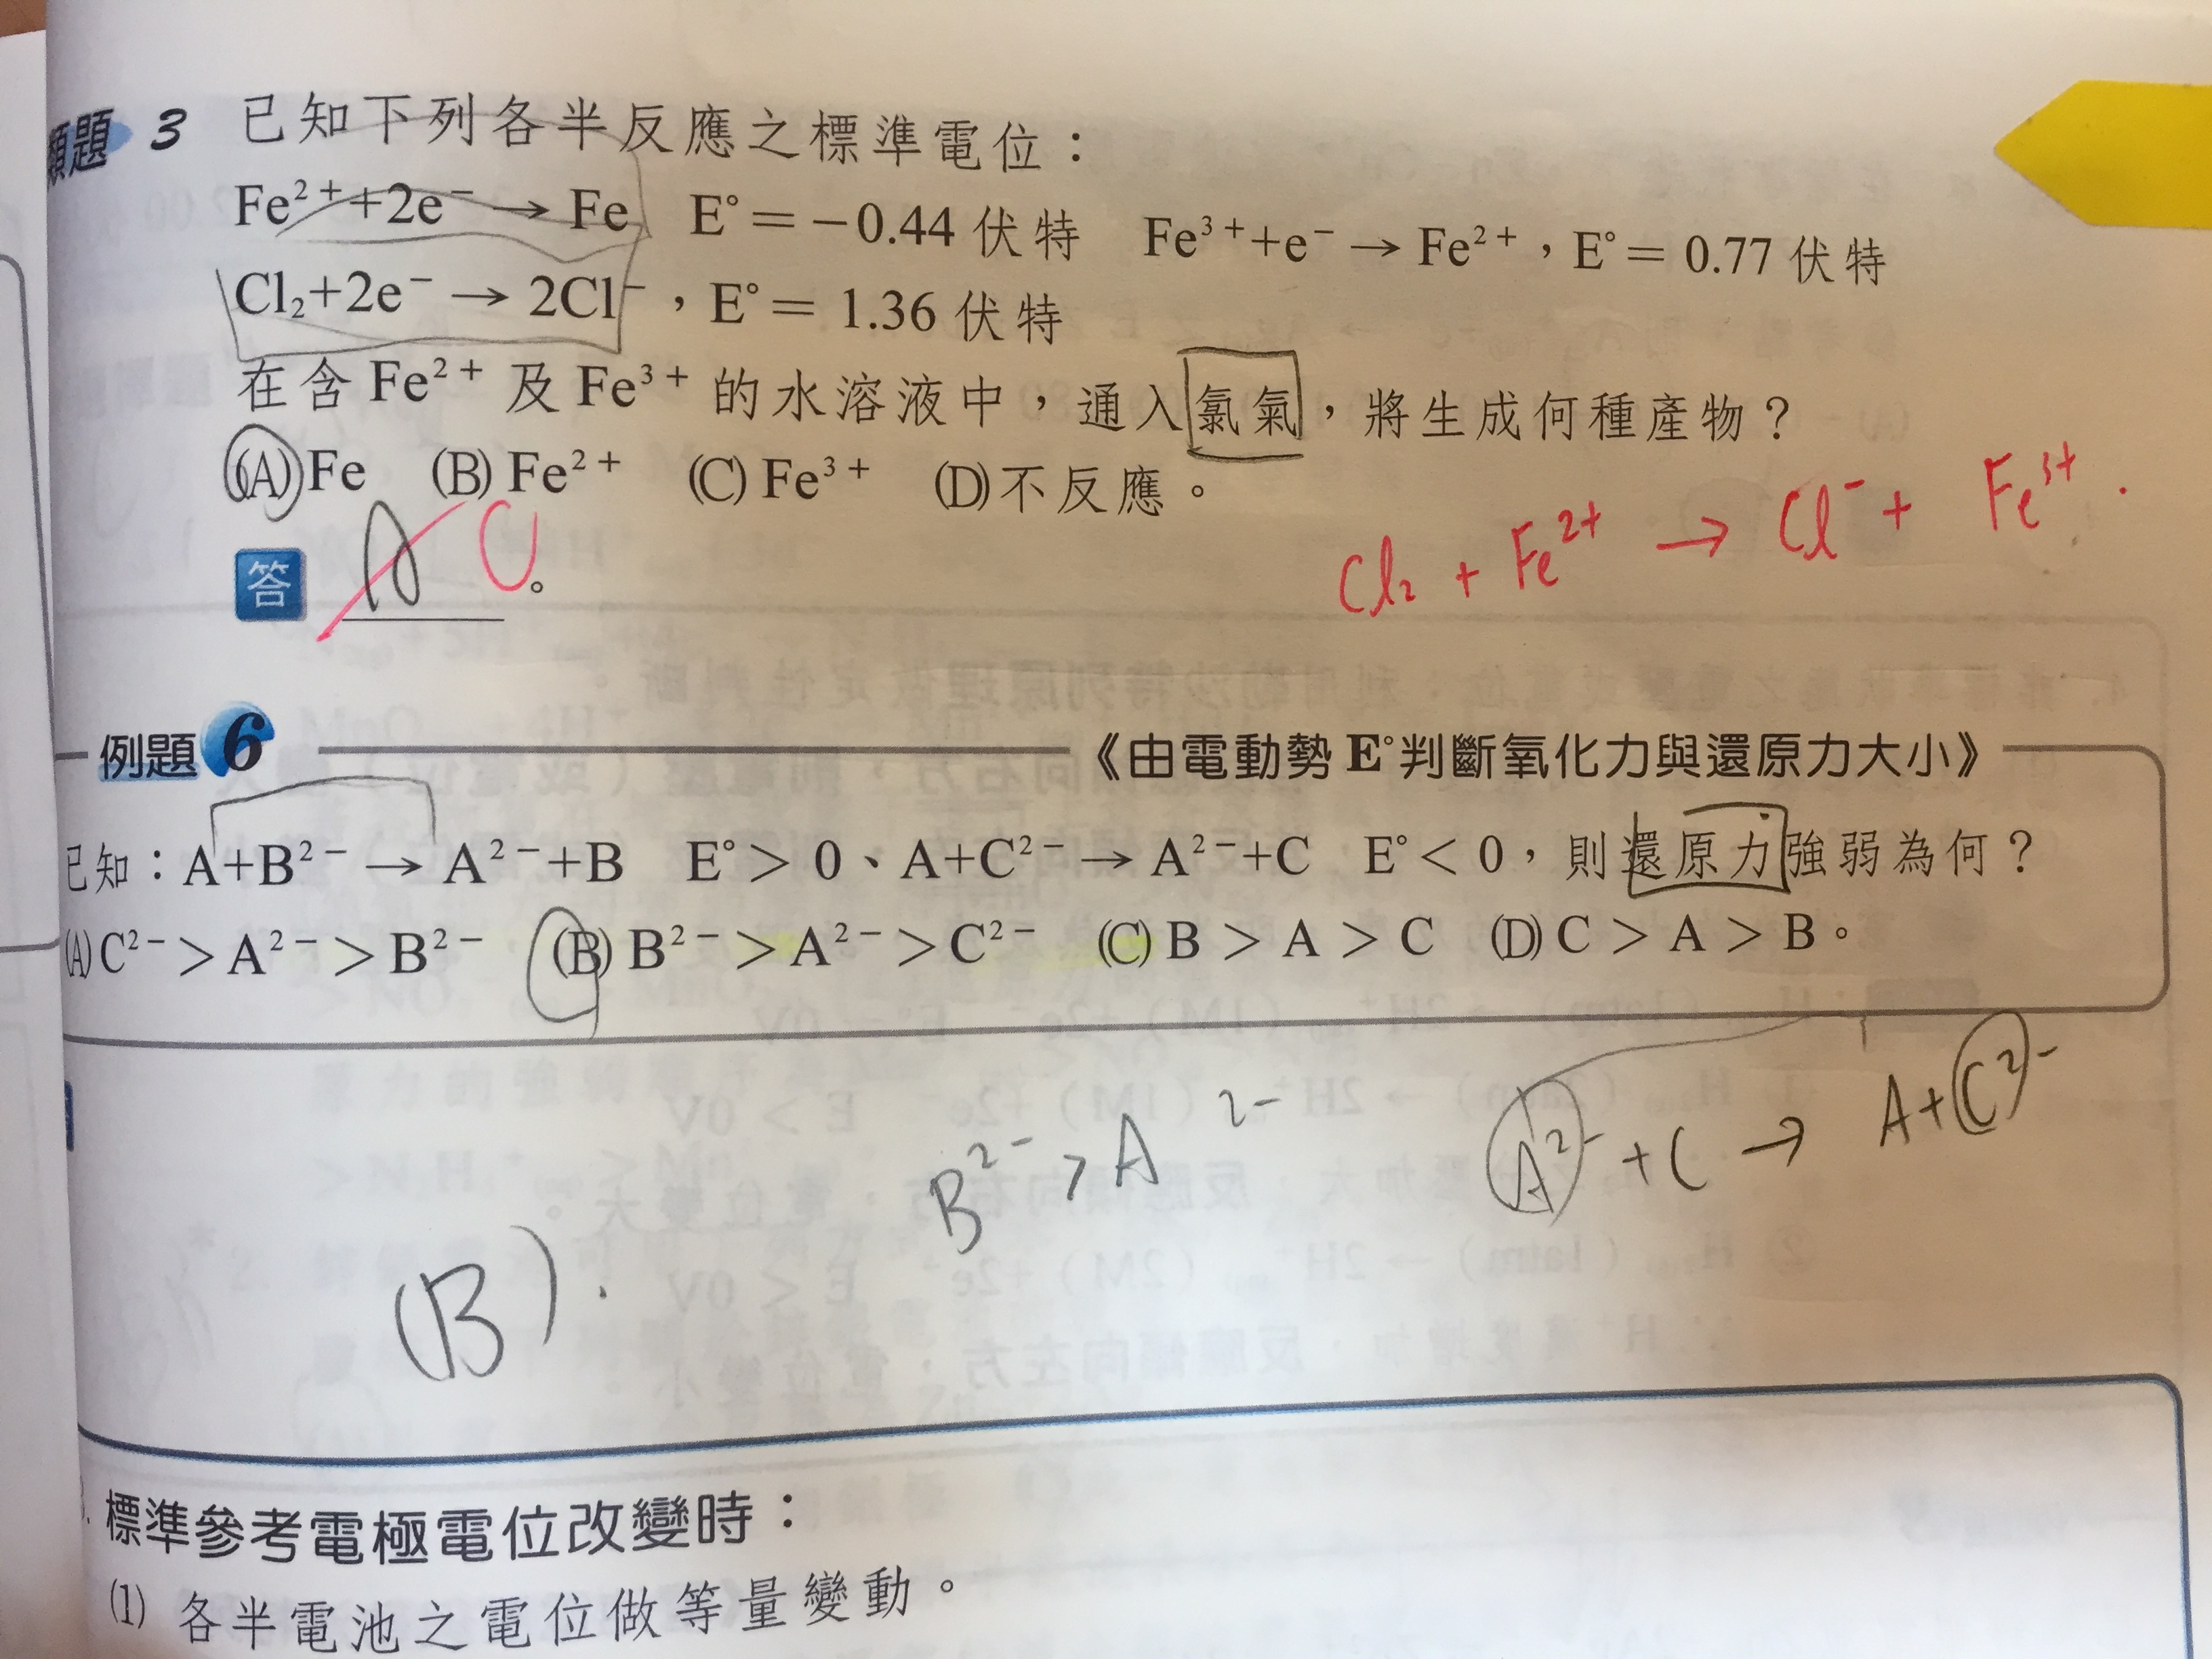 類題 3 已知下列各半反應之標準電位：
Fe²⁺+2e⁻ → Fe E°＝－0.44 伏特 Fe³⁺+e⁻ → Fe²⁺，E°＝ 0.77 伏特
Cl₂+2e⁻ → 2Cl⁻，E°＝ 1.36 伏特
在含 Fe²⁺ 及 Fe³⁺ 的水溶液中，通入氯氣，將生成何種產物？
(A) Fe (B) Fe²⁺ (C) Fe³⁺ (D)不反應。
Cl₂ + Fe²⁺ → Cl⁻ + Fe³⁺ .
答 A C 。
例題 6 《由電動勢 E° 判斷氧化力與還原力大小》
已知：A+B²⁻ → A²⁻+B E°＞0、A+C²⁻ → A²⁻+C E°＜0，則還原力強弱為何？
(A) C²⁻＞A²⁻＞B²⁻ (B) B²⁻＞A²⁻＞C²⁻ (C) B＞A＞C (D) C＞A＞B。
B²⁻ > A²⁻ A²⁻ + C → A + C²⁻
(B) .
標準參考電極電位改變時：
(1) 各半電池之電位做等量變動。